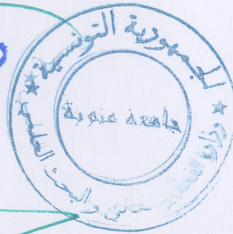 الجمهورية التونسية
جامعة منوبة
وزارة التعليم العالي والبحث العلمي